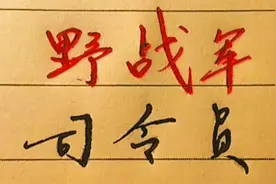 野战军
司令员